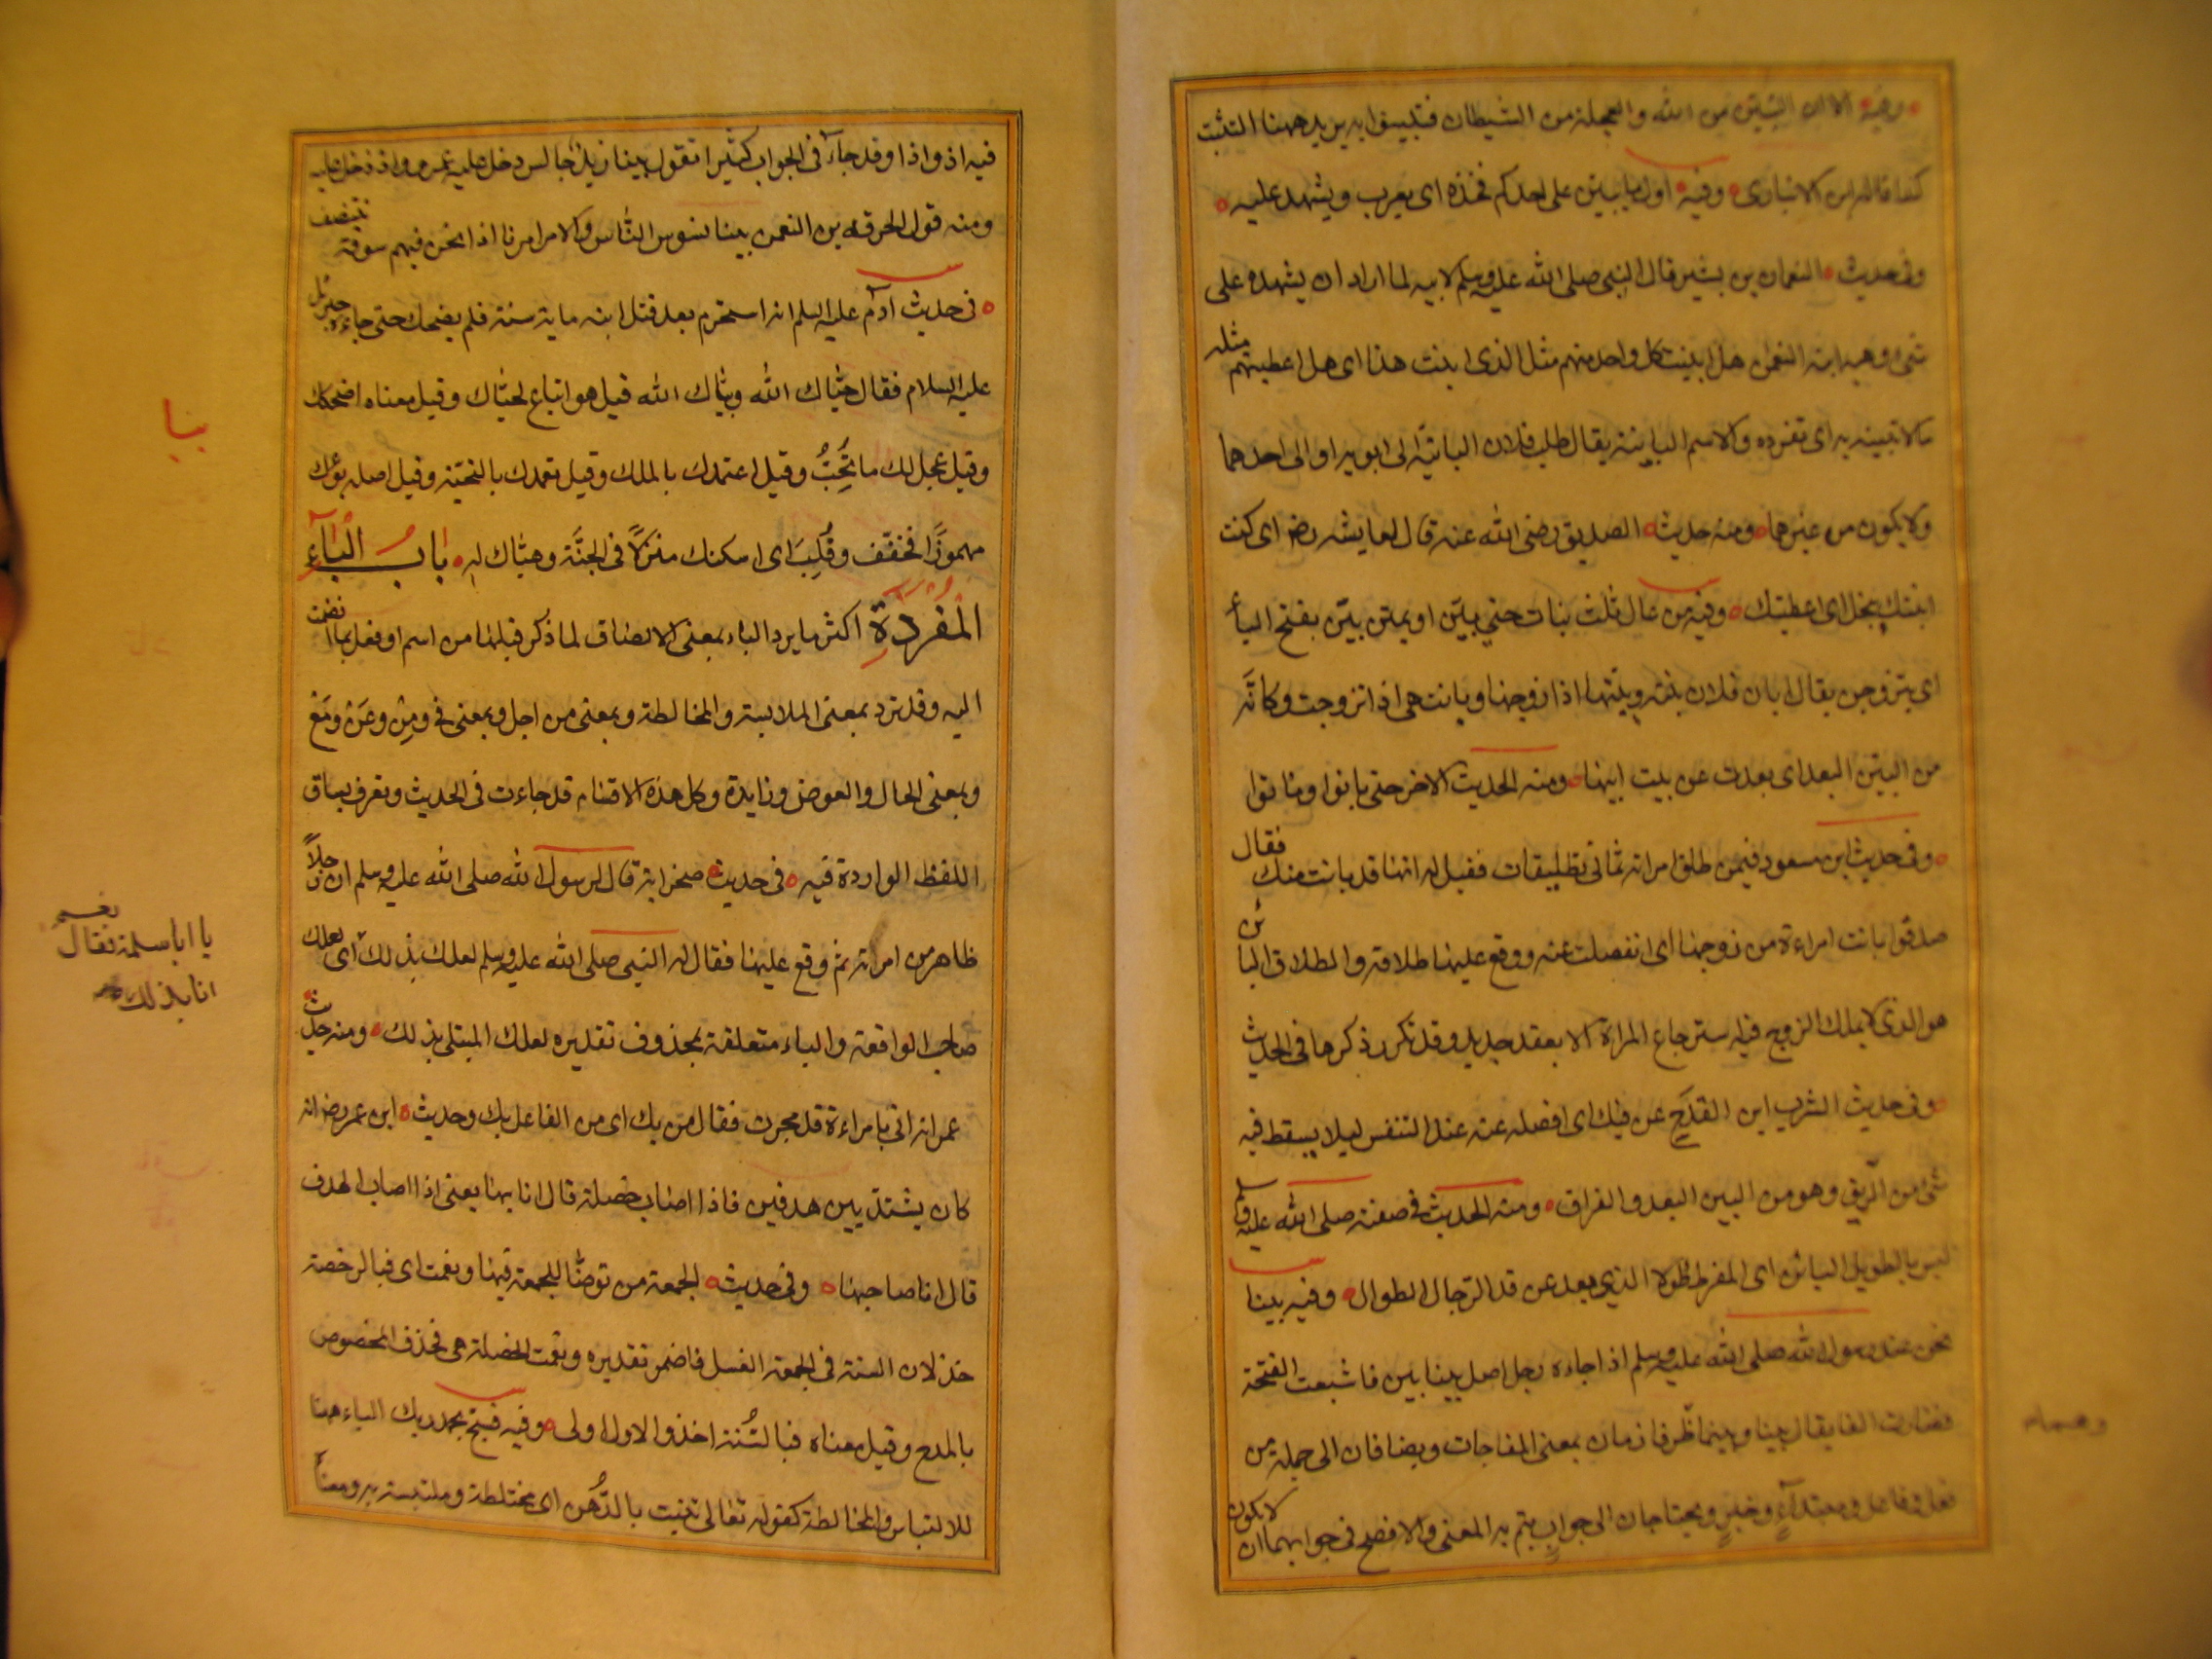 وفيه الا ان التبين من الله والعجلة من الشيطان فتبينوا يريد ههنا التثبت
كذا قاله ابن الانباری وفيه اول ما يبين على احدكم فخذه ای يعرب ويشهد عليه
وفی حديث النعمان بن بشير قال النبی صلی الله عليه وسلم لابيه لما اراد ان يشهده علی
شیء وهبه ابنه النعمن هل ابنت كل واحد منهم مثل الذی ابنت هذا ای هل اعطيتهم مثله
مالا تبينه به ای تفرده والاسم البائنة يقال طلب فلان البائنة الی ابويه او الی احدهما
ولا يكون من غيرهما ومنه حديث الصديق رضی الله عنه قال لعايشه رض ای كنت
ابنتك بنحل ای اعطيتك وفيه من عال ثلث بنات حتی يبنّ او يمتن يبنّ بفتح الياء
ای يتزوجن يقال ابان فلان بنته وبينها اذا زوجها وبانت هی اذا تزوجت وكانه
من البين البعد ای بعدت عن بيت ابيها ومنه الحديث الاخر حتی بانوا وماتوا
وفی حديث ابن مسعود فيمن طلق امراته ثمانی تطليقات فقيل له انها قد بانت منك فقال
صدقوا بانت امراءة من زوجها ای انفصلت عنه ووقع عليها طلاقه والطلاق البائن
هو الذی لا يملك الزوج فيه استرجاع المراة الا بعقد جديد وقد تكرر ذكرها فی الحديث
وفی حديث الشرب ابن القدح عن فيك ای افصله عنه عند التنفس ليلا يسقط فيه
شیء من الريق وهو من البين البعد والفراق ومنه الحديث فی صفته صلی الله عليه وسلم
ليس بالطويل البائن ای المفرط طولا الذی بعد عن قد الرجال الطوال وفيه بينا
نحن عند رسول الله صلی الله عليه وسلم اذا جاءه رجل اصل بينا بين فاشبعت الفتحة
فصارت الفا يقال بينا وبينما ظرفا زمان بمعنی المفاجات ويضافان الی جملة من
فعل وفاعل ومبتداء وخبر ويحتاجان الی جواب يتم به المعنی والافصح فی جوابهما ان لا يكون
فيه اذ واذا وقد جاء فی الجواب كثيرا تقول بينا زيد جالس دخل عليه عمرو واذ دخل عليه
ومنه قول الحرقه بن النعمن بينا نسوس الناس والامر امرنا اذا نحن فيهم سوقة نتنصف
فی حديث آدم عليه السلم انه استحرم بعد قتل ابنه ماية سنة فلم يضحك حتی جاءه جبرئل
عليه السلام فقال حيّاك الله وبيّاك الله قيل هو اتباع لحيّاك وقيل معناه اضحكك
وقيل عجل لك ما تحب وقيل اعتمدك بالملك وقيل تغمدك بالتحية وقيل اصله بوءك
مهموزا فخفف وقلب ای اسكنك منزلا فی الجنّة وهيّاك له باب الباء
المفردة اكثر ما يرد الباء بمعنی الالصاق لما ذكر قبلها من اسم او فعل بما انضمت
اليه وقد ترد بمعنی الملابسة والمخالطة وبمعنی من اجل وبمعنی فی ومن وعن ومع
وبمعنی الحال والعوض وزايدة وكل هذه الاقسام قد جاءت فی الحديث وتعرف بسياق
اللفظ الواردة فيه فی حديث صخر انه قال لرسول الله صلی الله عليه وسلم ان رجلا
ظاهر من امراته ثم وقع عليها فقال له النبی صلی الله عليه وسلم لعلك بذلك ای لعلك
صاحب الواقعة والباء متعلقة بمحذوف تقديره لعلك المبتلی بذلك ومنه حديث
عمر انه اتی بامراءة قد فجرت فقال من بك ای من الفاعل بك وحديث ابن عمر رض انه
كان يشتد بين هدفين فاذا اصاب خصلة قال انا بها يعنی اذا اصاب الهدف
قال انا صاحبها وفی حديث الجمعة من توضّا للجمعة فبها ونعمت ای فبالرخصة
اخذ لان السنة فی الجمعة الغسل فاضمر تقديره ونعمت الخصلة هی فحذف المخصوص
بالمدح وقيل معناه فبالسُنة اخذ والاول اولی وفيه فسبح بحمد ربك الباء ههنا
للالتباس والمخالطة كقوله تعالی تنبت بالدهن ای مختلطة وملتبسة به ومعناه
بيا
يا ابا سلمة فقال نعم
انا بذلك